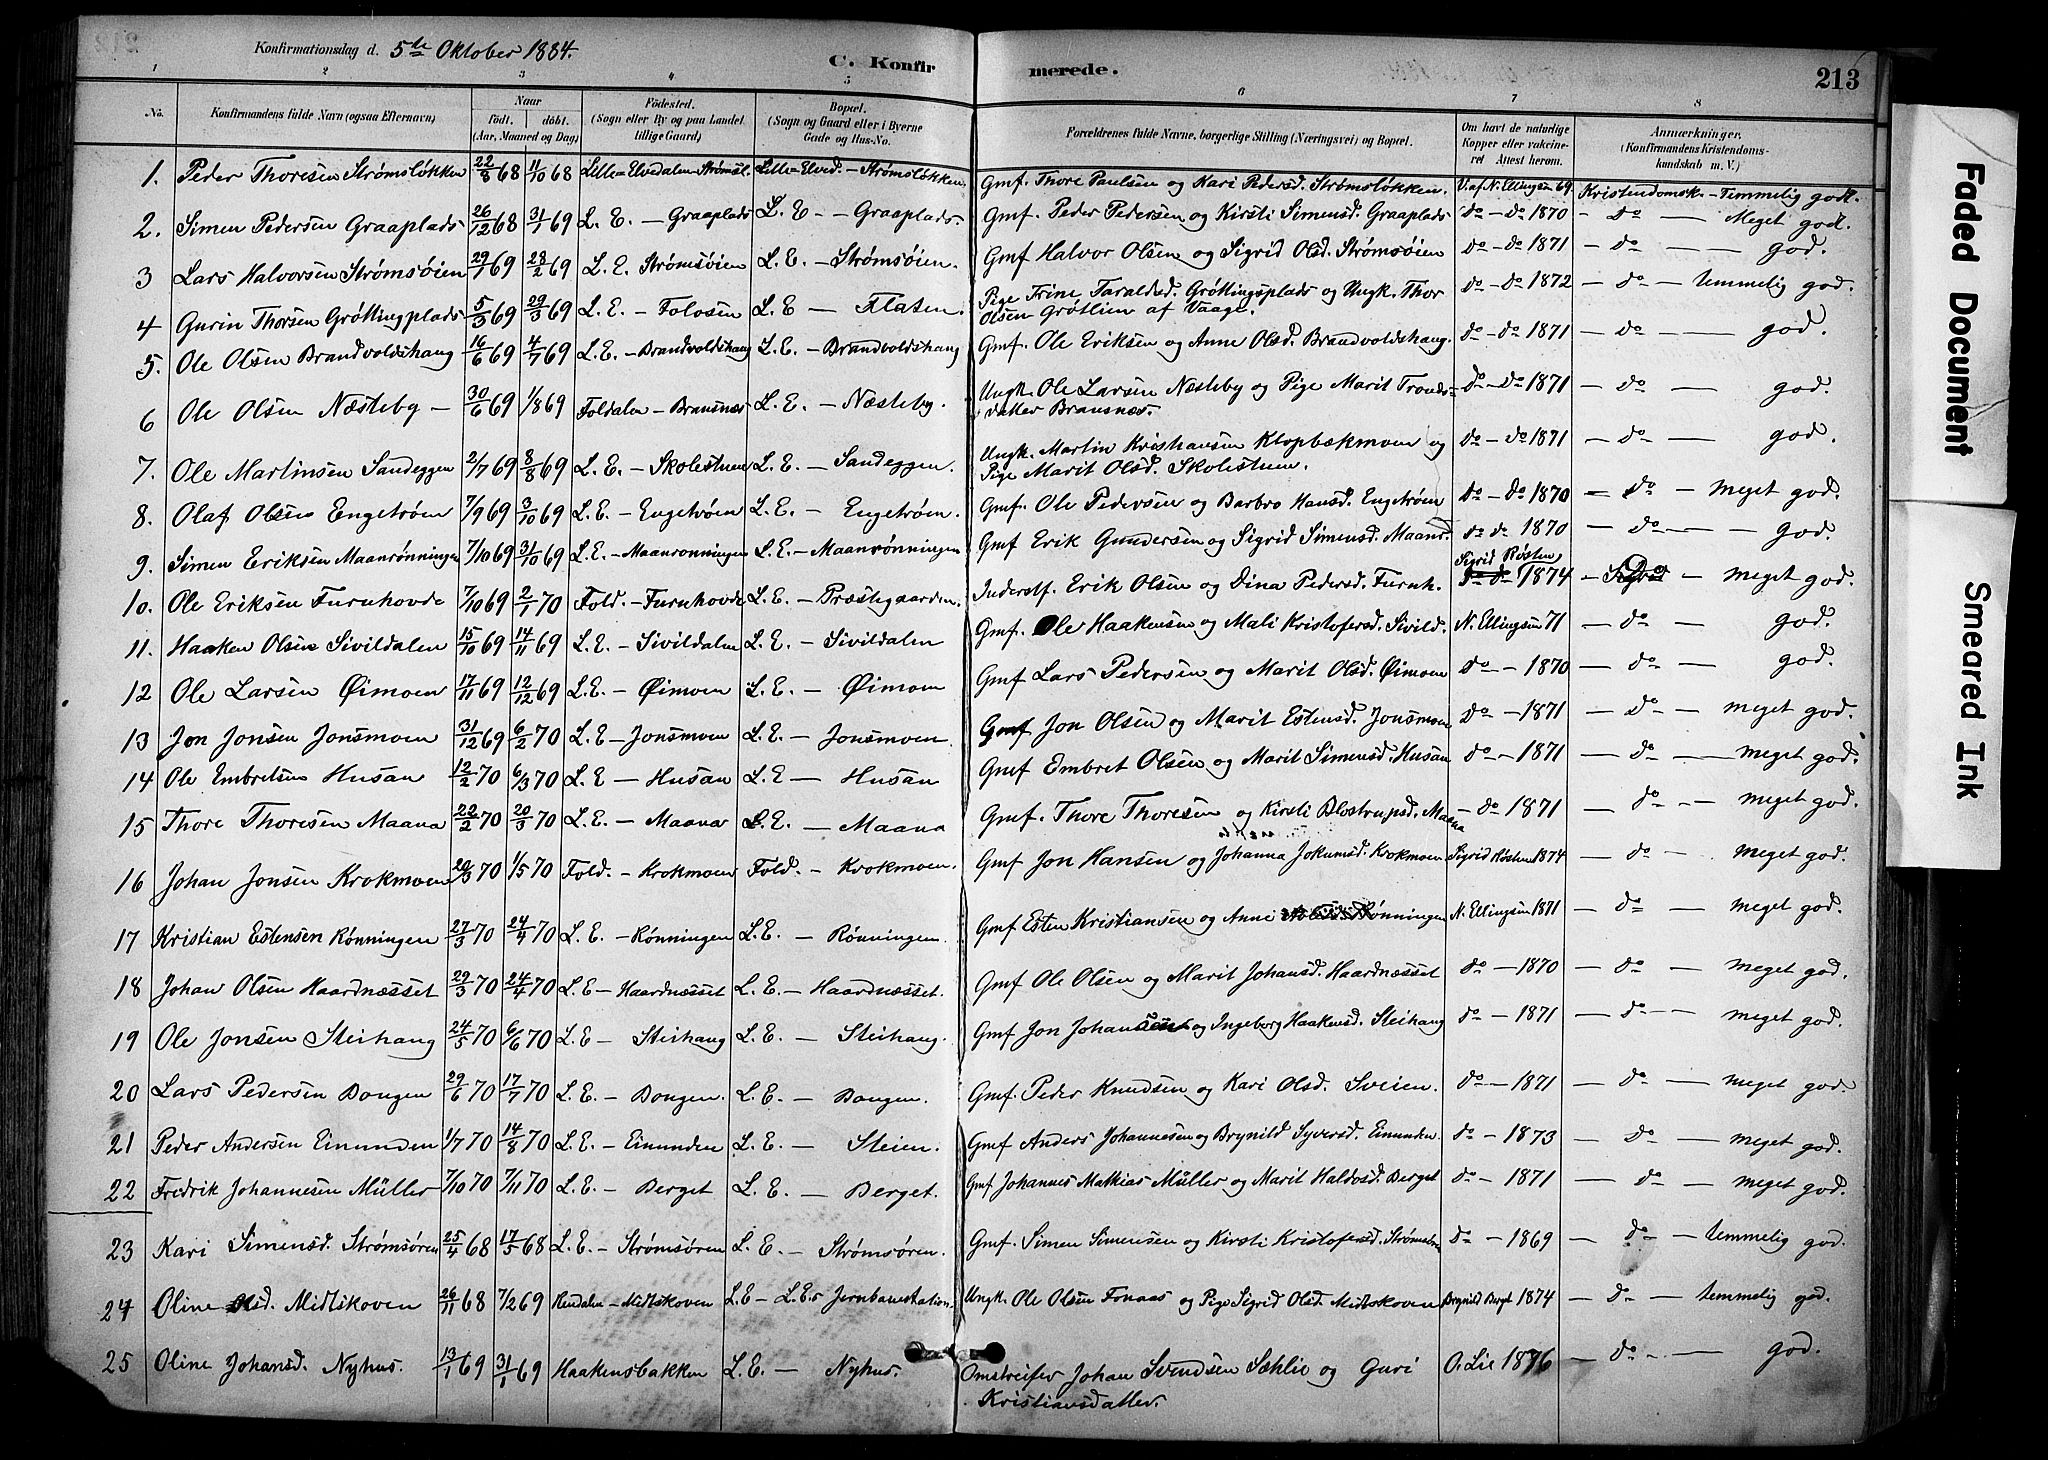 Konfirmationsdag d. 5te Oktober 1884.
C. Konfirmerede.
213
1 2 3 4 5 6 7 8
No. Konfirmandens fulde Navn (ogsaa Efternavn) Naar födt. döbt. (Aar, Maaned og Dag) Födested. (Sogn eller By og paa Landet tillige Gaard) Bopæl. (Sogn og Gaard eller i Byerne Gade og Hus-No. Forældrenes fulde Navne, borgerlige Stilling (Næringsvei) og Bopæl. Om havt de naturlige Kopper eller vaccineret Attest herom. Anmærkninger, (Konfirmandens Kristendomskundskab m. V.)
1. Peder Thoresen Strømsløkken 22/8 68 11/10 68 Lille-Elvedalen-Strømsl. Lille-Elved. - Strømsløkken. Gmf. Thore Paulsen og Kari Pedersd. Strømsløkken. V. af N. Ellingsen 69 Kristendomsk. - Temmelig god.
2. Simen Pedersen Graaplads 26/12 68 31/1 69 L. E. - Graaplads L. E - Graaplads. Gmf. Peder Pedersen og Kirsti Simensd. Graaplads do - do 1870 - do - Meget god.
3 Lars Halvorsen Strømsøien 29/1 69 28/2 69 L. E. Strømsøien L. E. - Strømsøien. Gmf Halvor Olsen og Sigrid Olsd. Strømsøien do - do 1871 - do - god.
4 Gurin Thorsen Gröttingplads 5/3 69 29/3 69 L. E. - Folosen L. E - Flaten. Pige Trine Taraldsd. Gröttingsplads og Ungk. Thor do - do 1872 - do - temmelig god.
Olsen Grötlien af Vaage.
5. Ole Olsen Brandvoldshaug 16/6 69 4/7 69 L. E. - Brandvoldshaug L. E. - Brandvoldshaug Gmf. Ole Eriksen og Anne Olsd. Brandvoldshaug. do - do 1871 - do - god.
6 Ole Olsen Næsteby - 30/6 69 1/8 69 Foldalen - Bransnæs L. E. - Næsteby. Ungk. Ole Larsen Næsteby og Pige Marit Tronds- do - do 1871 - do - god.
datter Bransnæs.
7. Ole Martinsen Sandeggen 2/7 69 8/8 69 L. E. - Skolestuen L. E. - Sandeggen. Ungk. Martin Kristiansen Klopbækmoen og do - do 1871 - do - god.
Pige Marit Olsd. Skolestuen.
8. Olaf Olsen Engetrøen 7/9 69 3/10 69 L. E. - Engetrøen L. E. - Engetrøen. Gmf. Ole Pedersen og Barbro Hansd. Engetrøen do - do 1870 - do - meget god.
9. Simen Eriksen Maanrønningen 7/10 69 31/10 69 L. E. - Maanronningen L. E. - Maanrønningen Gmf Erik Gundersen og Sigrid Simensd. Maanr. do do 1870 - do - god.
10. Ole Eriksen Furuhovde 7/10 69 2/1 70 Fold. - Furuhovde L. E. - Præstegaarden. Inderstf. Erik Olsen og Dina Pedersd. Furuh. Sigrid Røsten 1874 - Do - meget god.
11. Haaken Olsen Sivildalen 15/10 69 14/11 69 L. E. - Sivildalen L. E. - Sivildalen Gmf. Ole Haakensen og Mali Kristofersd. Sivild. N. Ellingsen 71 - do - god.
12 Ole Larsen Øimoen 17/11 69 12/12 69 L. E. - Øimoen L. E. - Øimoen Gmf Lars Pedersen og Marit Olsd. Øimoen do - 1870 - do - god.
13 Jon Jonsen Jonsmoen 31/12 69 6/2 70 L. E - Jonsmoen L. E. - Jonsmoen. Gmf Jon Olsen og Marit Estensd. Jonsmoen do - 1871 - do - meget god.
14 Ole Embretsen Husan 12/2 70 6/3 70 L. E - Husan L. E - Husan Gmf Embret Olsen og Marit Simensd. Husan do - 1871 - do - meget god.
15 Thore Thoresen Maana 22/2 70 20/3 70 L. E. - Maana L. E. - Maana Gmf. Thore Thoresen og Kirsti Maana - do 1871 - do - meget god.
16 Johan Jonsen Krokmoen 20/3 70 1/5 70 Fold. - Krokmoen Fold. - Krokmoen. Gmf Jon Hansen og Johanna Jokumsd. Krokmoen Sigrid Røsten 1874 - do - meget god.
17 Kristian Estensen Rønningen 27/3 70 24/4 70 L. E - Rønningen L. E. - Rønningen. Gmf Esten Kristiansen og Anne Rønningen N. Ellingsen 1871 - do - meget god.
18 Johan Olsen Haardnæsset 29/3 70 24/4 70 L. E - Haardnæsset L. E. - Haardnæsset. Gmf Ole Olsen og Marit Johansd. Haardnæsset do - 1870 - do - meget god.
19 Ole Jonsen Steihaug 24/5 70 6/6 70 L. E - Steihaug L. E. - Steihaug. Gmf Jon Johansen og Ingeborg Haakensd. Steihaug do - 1871 - do - meget god.
20 Lars Pedersen Bongen 29/6 70 17/7 70 L. E. - Bongen. L. E. - Bongen. Gmf. Peder Knudsen og Kari Olsd. Sveien. do - 1871 - do - meget god.
21 Peder Andersen Einunden 1/7 70 14/8 70 L. E. - Einunden L. E. - Steien. Gmf Anders Johannesen og Brynild Syversd. Einunden. do - 1873 - do - meget god.
22 Fredrik Johannesen Müller 7/10 70 7/11 70 L. E. - Berget L. E. - Berget. Gmf Johannes Mathias Müller og Marit Haldosd. Berget do - 1871 - do - meget god.
23 Kari Simensd. Strømsøren 25/4 68 17/5 68 L. E. - Strømsøren L. E. - Strømsøren. Gmf. Simen Simensen og Kirsti Kristofersd. do - 1869 - do - temmelig god.
24 Oline Olsd. Midtskoven 26/11 68 7/2 69 Rendalen - Midtskoven L. E - L. E.s Jernbanestation. Ungk. Ole Olsen Fonaas og Pige Sigrid Olsd. Midtskoven Brynild Berget 1874 - do - temmelig god.
25 Oline Johansd. Nyhus. 13/1 69 31/1 69 Haakensbakken L. E. - Nyhus. Omstreifer Johan Svendsen Sæhlie og Guri O. Lie 1876 - do - god.
Kristiansdatter.
Faded Document
Smeared Ink